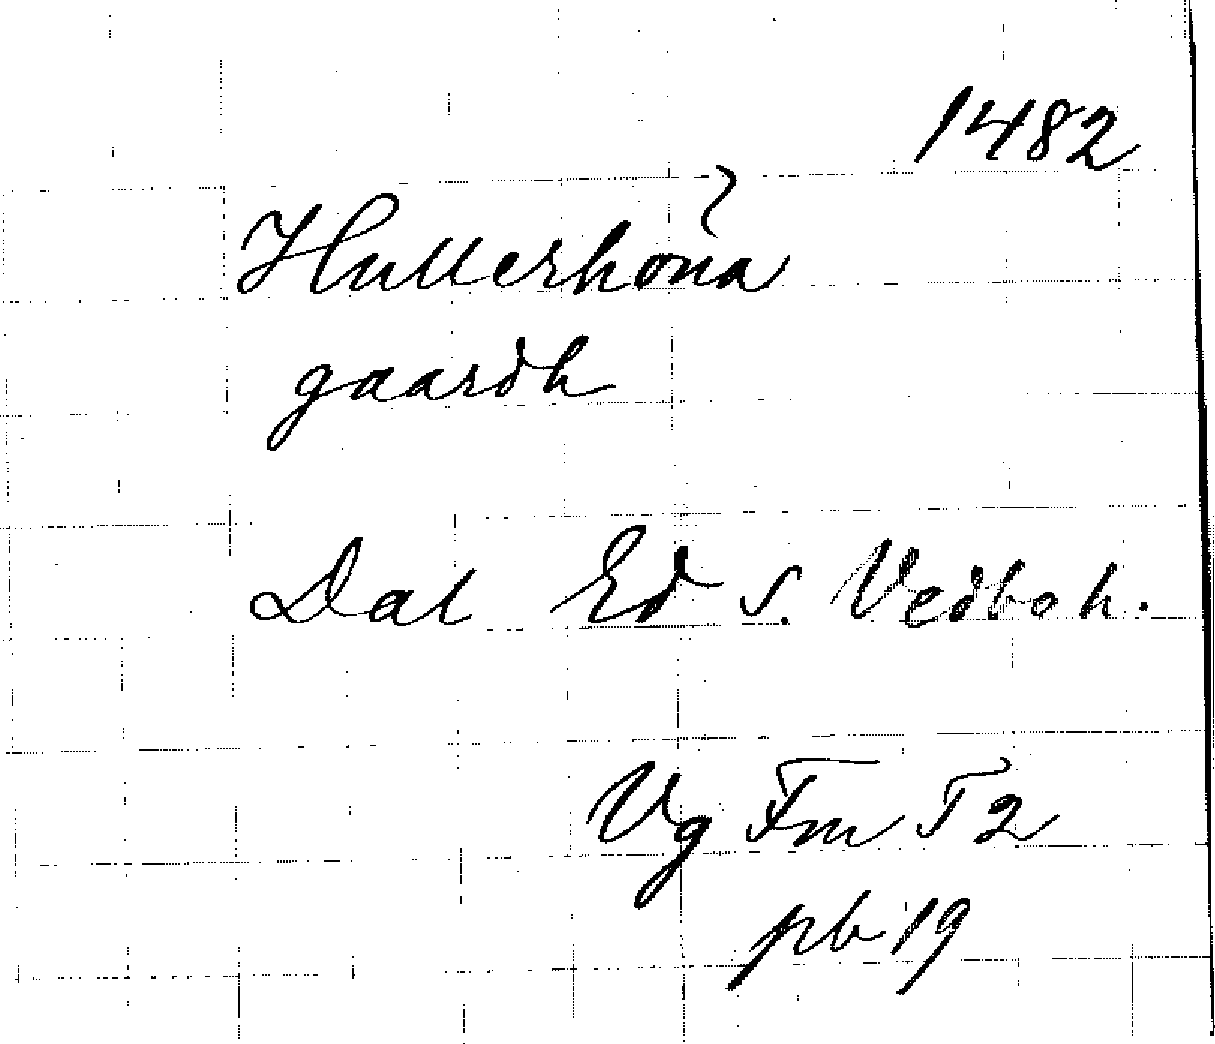 1482
Hullerhöna
gaardh
Dal Ed s. Vedboh.
Vg Fm T2
pb 19